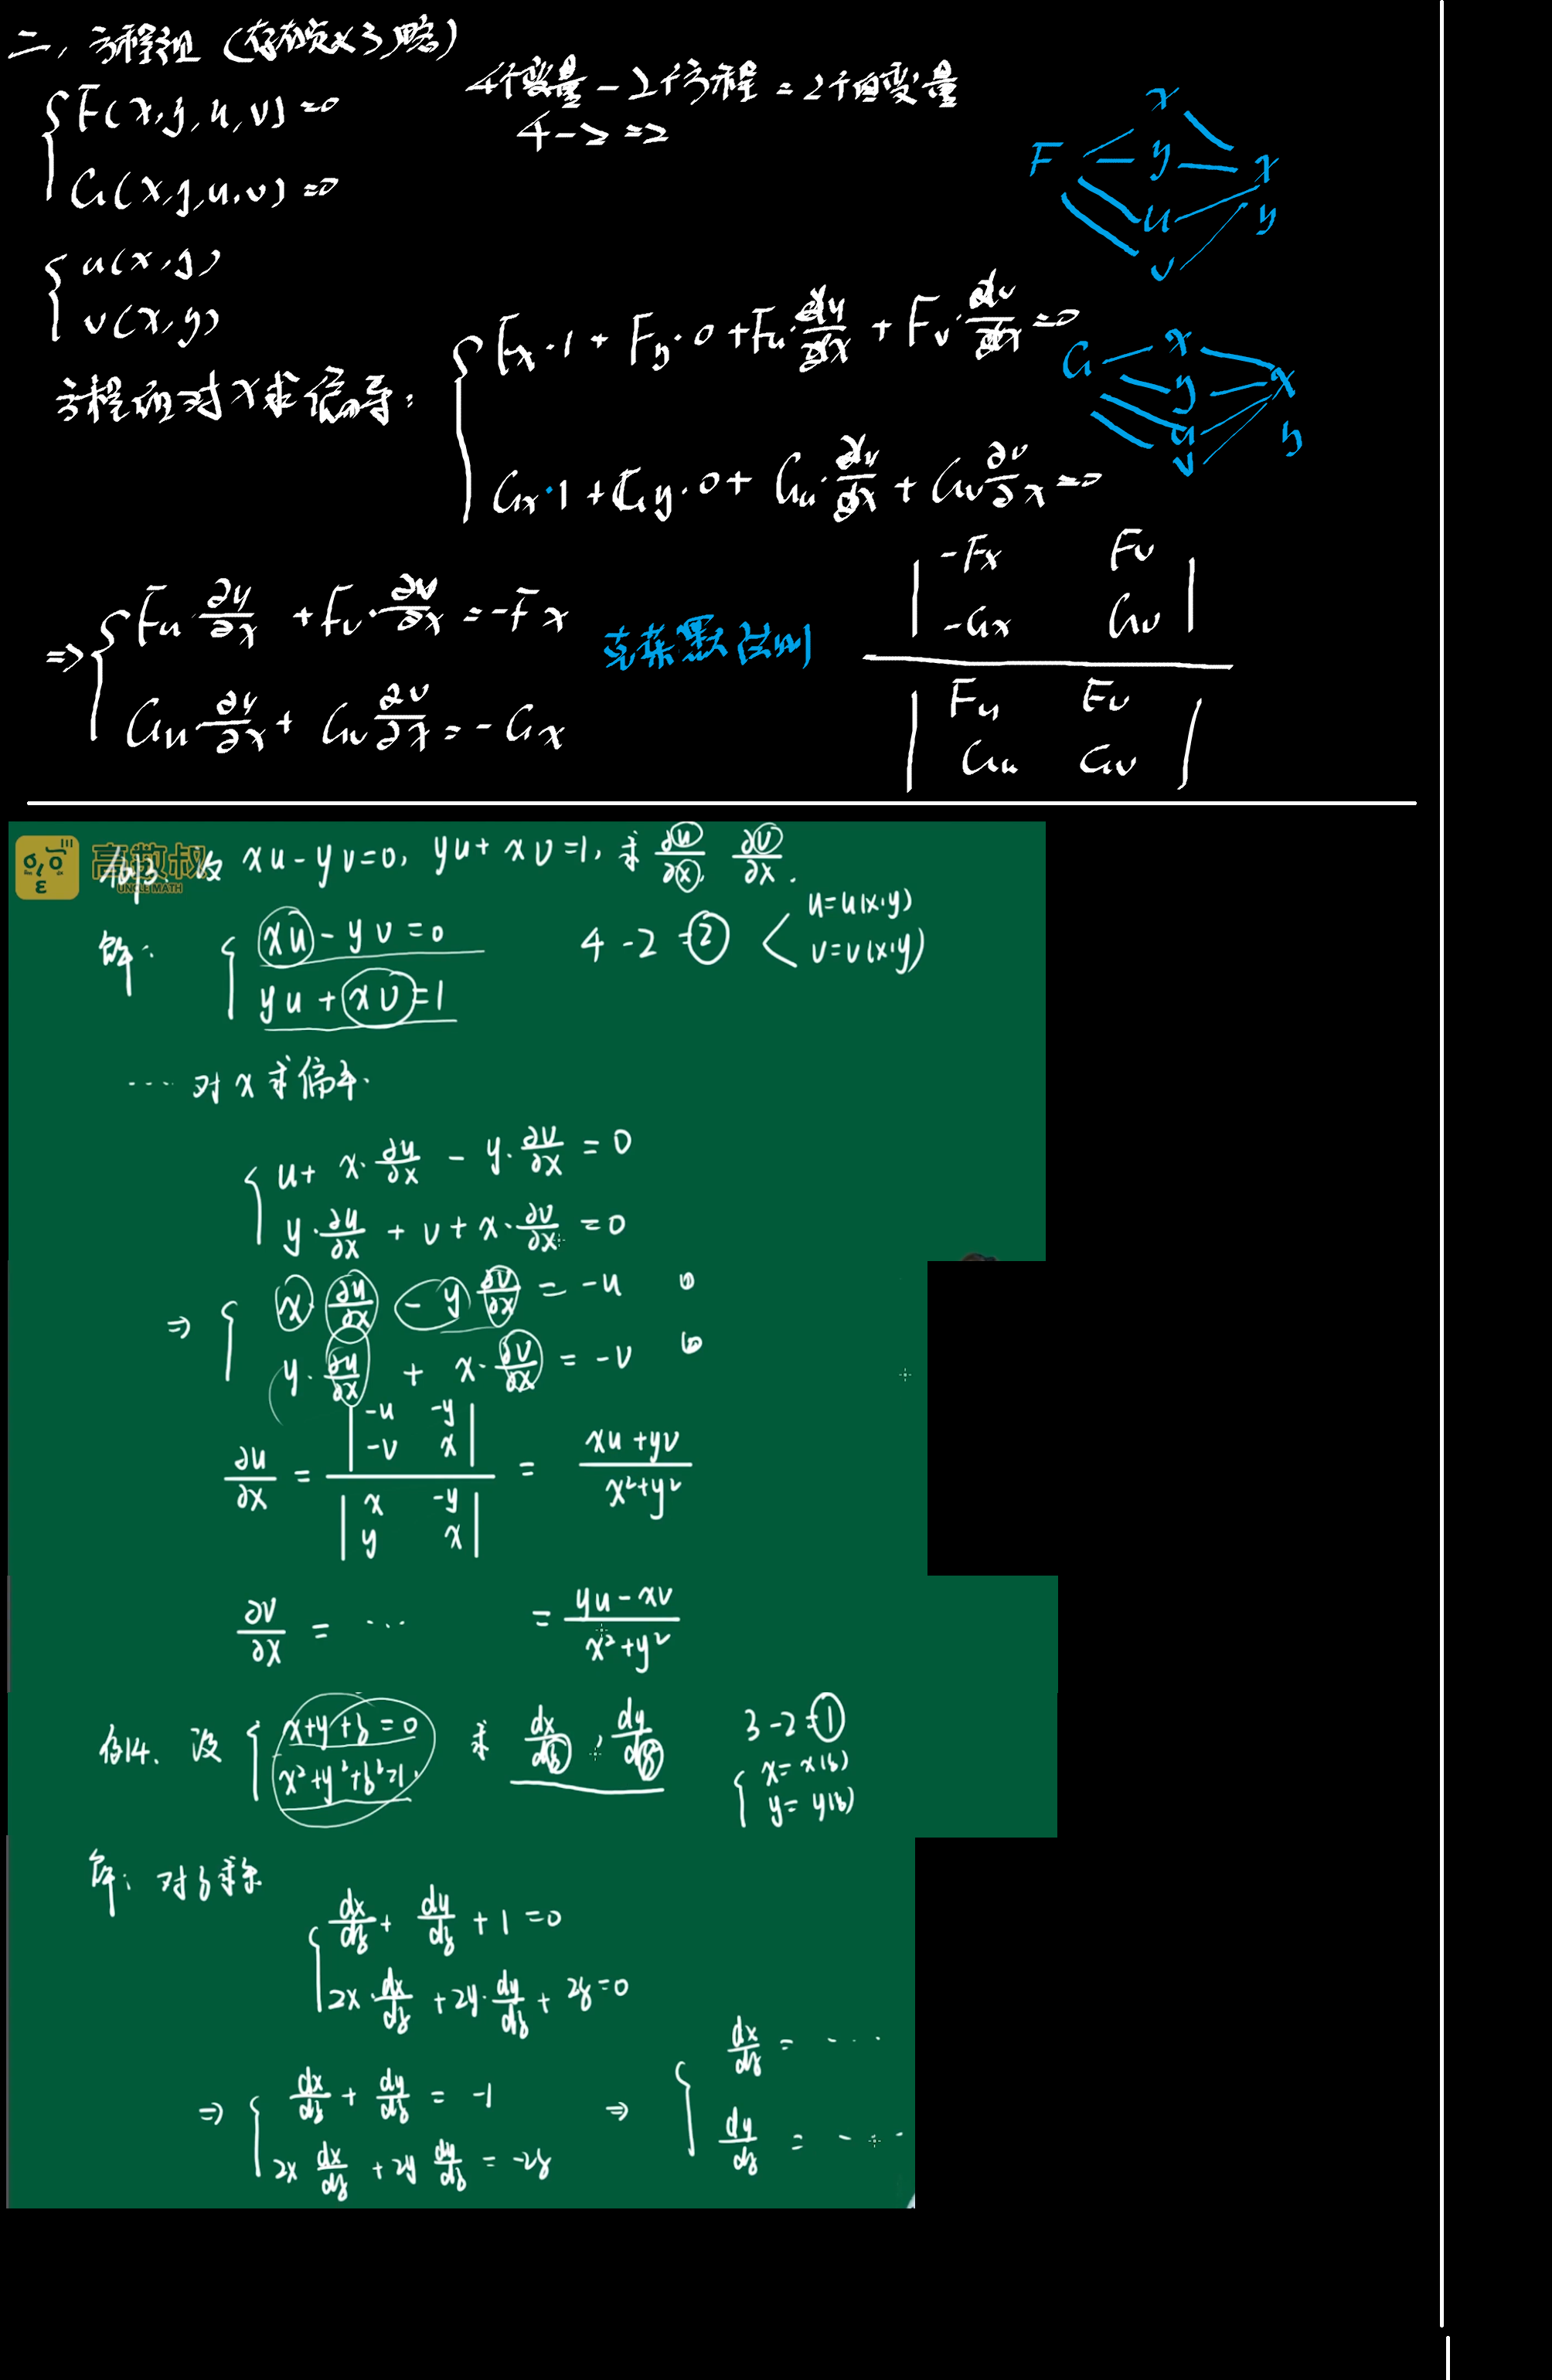 二、方程组(存在定义3)略)
4个变量-2个方程=2个自变量
{F(x,y,u,v)=0
4-2=2
G(x,y,u,v)=0
{u(x,y)
v(x,y)
F x y u v x y
方程两对x求偏导:
{Fx·1+Fy·0+Fu·∂u/∂x+Fv·∂v/∂x=0
Gx·1+Gy·0+Gu·∂u/∂x+Gv∂v/∂x=0
G x y u v x y
⇒{Fu·∂u/∂x+Fv·∂v/∂x=-Fx
Gu·∂u/∂x+Gv∂v/∂x=-Gx
克莱默法则
|-Fx Fv|
|-Gx Gv|
|Fu Fv|
|Gu Gv|
高数叔
UNCLE MATH
例13. 设 xu-yv=0, yu+xv=1, 求 ∂u/∂x, ∂v/∂x.
解: {xu-yv=0
yu+xv=1
4-2=2 < u=u(x,y)
v=v(x,y)
···· 对x求偏导.
{u+x·∂u/∂x-y·∂v/∂x=0
y·∂u/∂x+v+x·∂v/∂x=0
⇒{x·∂u/∂x-y∂v/∂x=-u ①
y·∂u/∂x+x·∂v/∂x=-v ②
∂u/∂x = |-u -y; -v x| / |x -y; y x| = (xu+yv)/(x²+y²)
∂v/∂x = ··· = (yu-xv)/(x²+y²)
例14. 设 {x+y+z=0
x²+y²+z²=1.
求 dx/dz, dy/dz
3-2=1
{x=x(z)
y=y(z)
解: 对z求导
{dx/dz+dy/dz+1=0
2x·dx/dz+2y·dy/dz+2z=0
⇒{dx/dz+dy/dz=-1
2x dx/dz+2y dy/dz=-2z
⇒{dx/dz=····
dy/dz=···